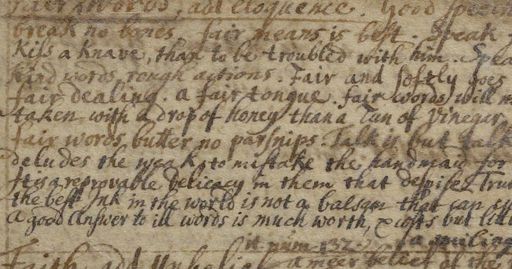 fair words, add eloquence. Good
break no bones. fair means is best. Speak
Kiss a knave, than to be troubled with him. Spea
kind words, rough actions. Fair and softly goes
fair dealing a fair tongue. fair words will
taken with a drop of honey than a tun of vinegar
fair words butter no parsnips. Talk is but talk
deludes the weak to mistake the handmaid for
It is a reprovable delicacy in them that despise Trut
the best Ink in the world is not a balsam that can
A good answer to ill words is much worth, & costs but litt
it num. 132. a
Faith, add Unbelief a meer belief of the